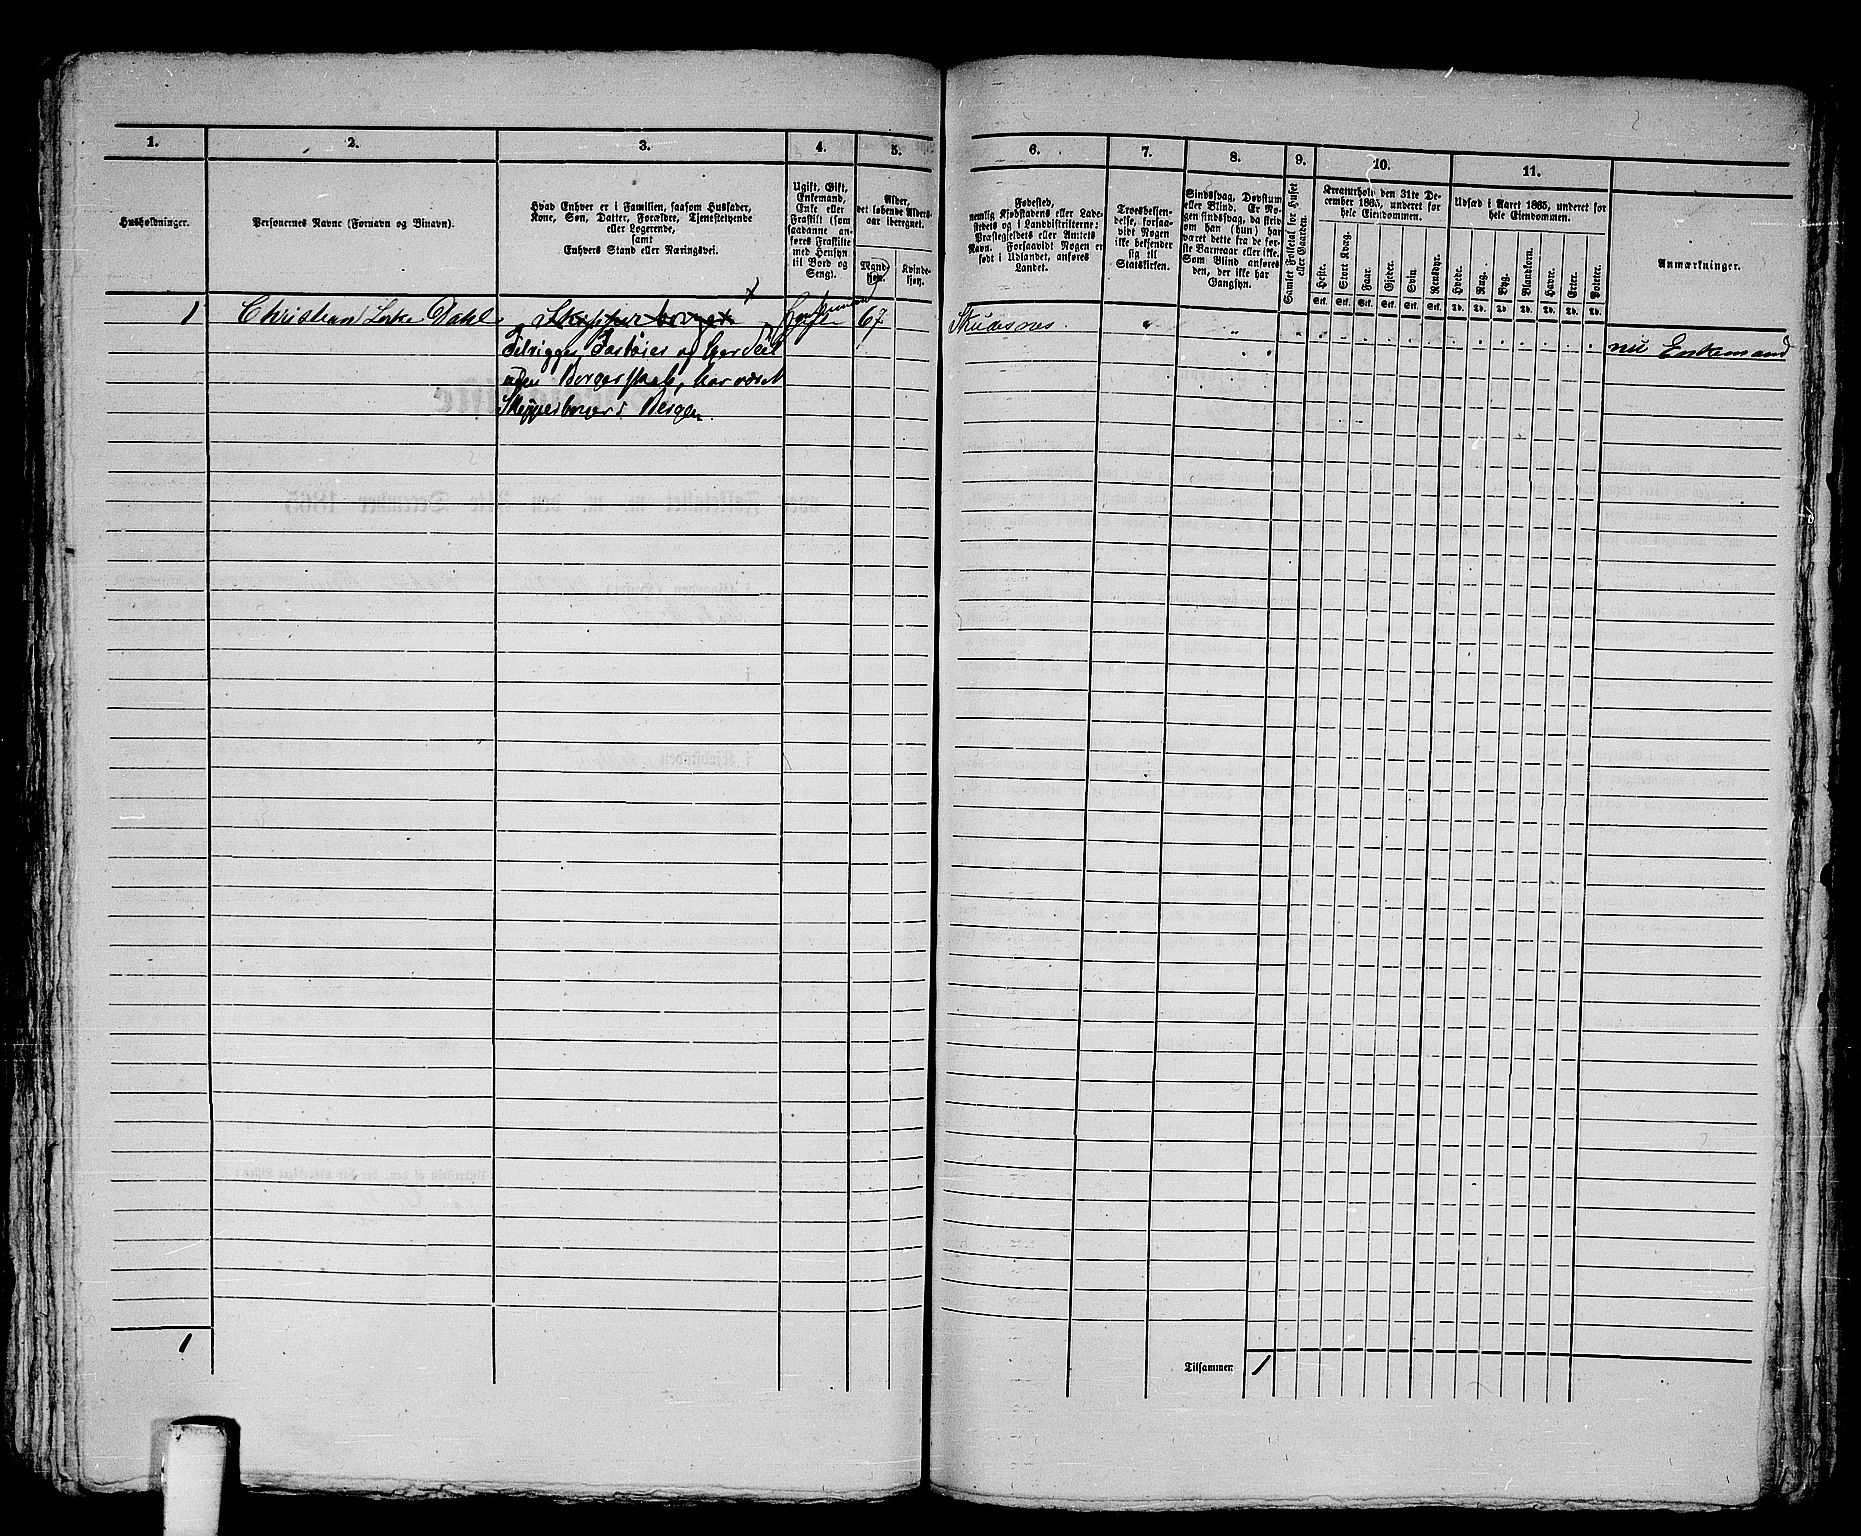 1.
2.
3.
4.
5.
Husholdninger.
Personernes Navne (Fornavn og Binavn).
Hvad Enhver er i Familien, saasom Husfader,
Kone, Søn, Datter, Forældre, Tjenestetyende
eller Logerende,
samt
Enhvers Stand eller Næringsvei.
Ugift, Gift,
Enkemand,
Enke eller
Fraskilt (som
saadanne an-
føres Fraskilte
med Hensyn
til Bord og
Seng).
Alder,
det løbende Alders-
aar iberegnet.
Mand-
kjøn.
Kvinde-
kjøn.
1 Christian Dahl Skipper borger 67
Tilrigger, og
uden Borgerskab, har været
Skipperborger i Bergen.
1
6.
7.
8.
9.
10.
11.
Fødested,
nemlig Kjøbstadens eller Lade-
stedets og i Landdistrikterne:
Præstegjeldets eller Amtets
Navn. Forsaavidt Nogen er
født i Udlandet, anføres
Landet.
Troesbekjen-
delse, forsaa-
vidt Nogen
ikke bekjender
sig til
Statskirken.
Sindssvag, Døvstum
eller Blind. Er No-
gen sindssvag, da skriv
om han (hun) har
været dette fra de før-
ste Barneaar eller ikke.
Som Blind anføres
den, der ikke har
Gangsyn.
Samlet Folketal for Huset
eller Gaarden.
Kreaturhold den 31te De-
cember 1865, underet for
hele Eiendommen.
Heste.
Stort Kvæg.
Faar.
Gjeder.
Svin.
Rensdyr.
Stk. Stk. Stk. Stk. Stk. Stk.
Udsæd i Aaret 1865, underet for
hele Eiendommen.
Hvede.
Rug.
Byg.
Blandkorn.
Havre.
Erter.
Poteter.
Td. Td. Td. Td. Td. Td. Td.
Anmærkninger.
Skudesnes
nu Enkemand
Tilsammen 1